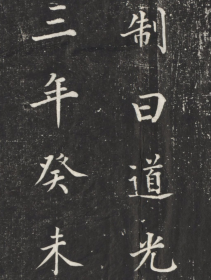 制曰道光
三年癸未